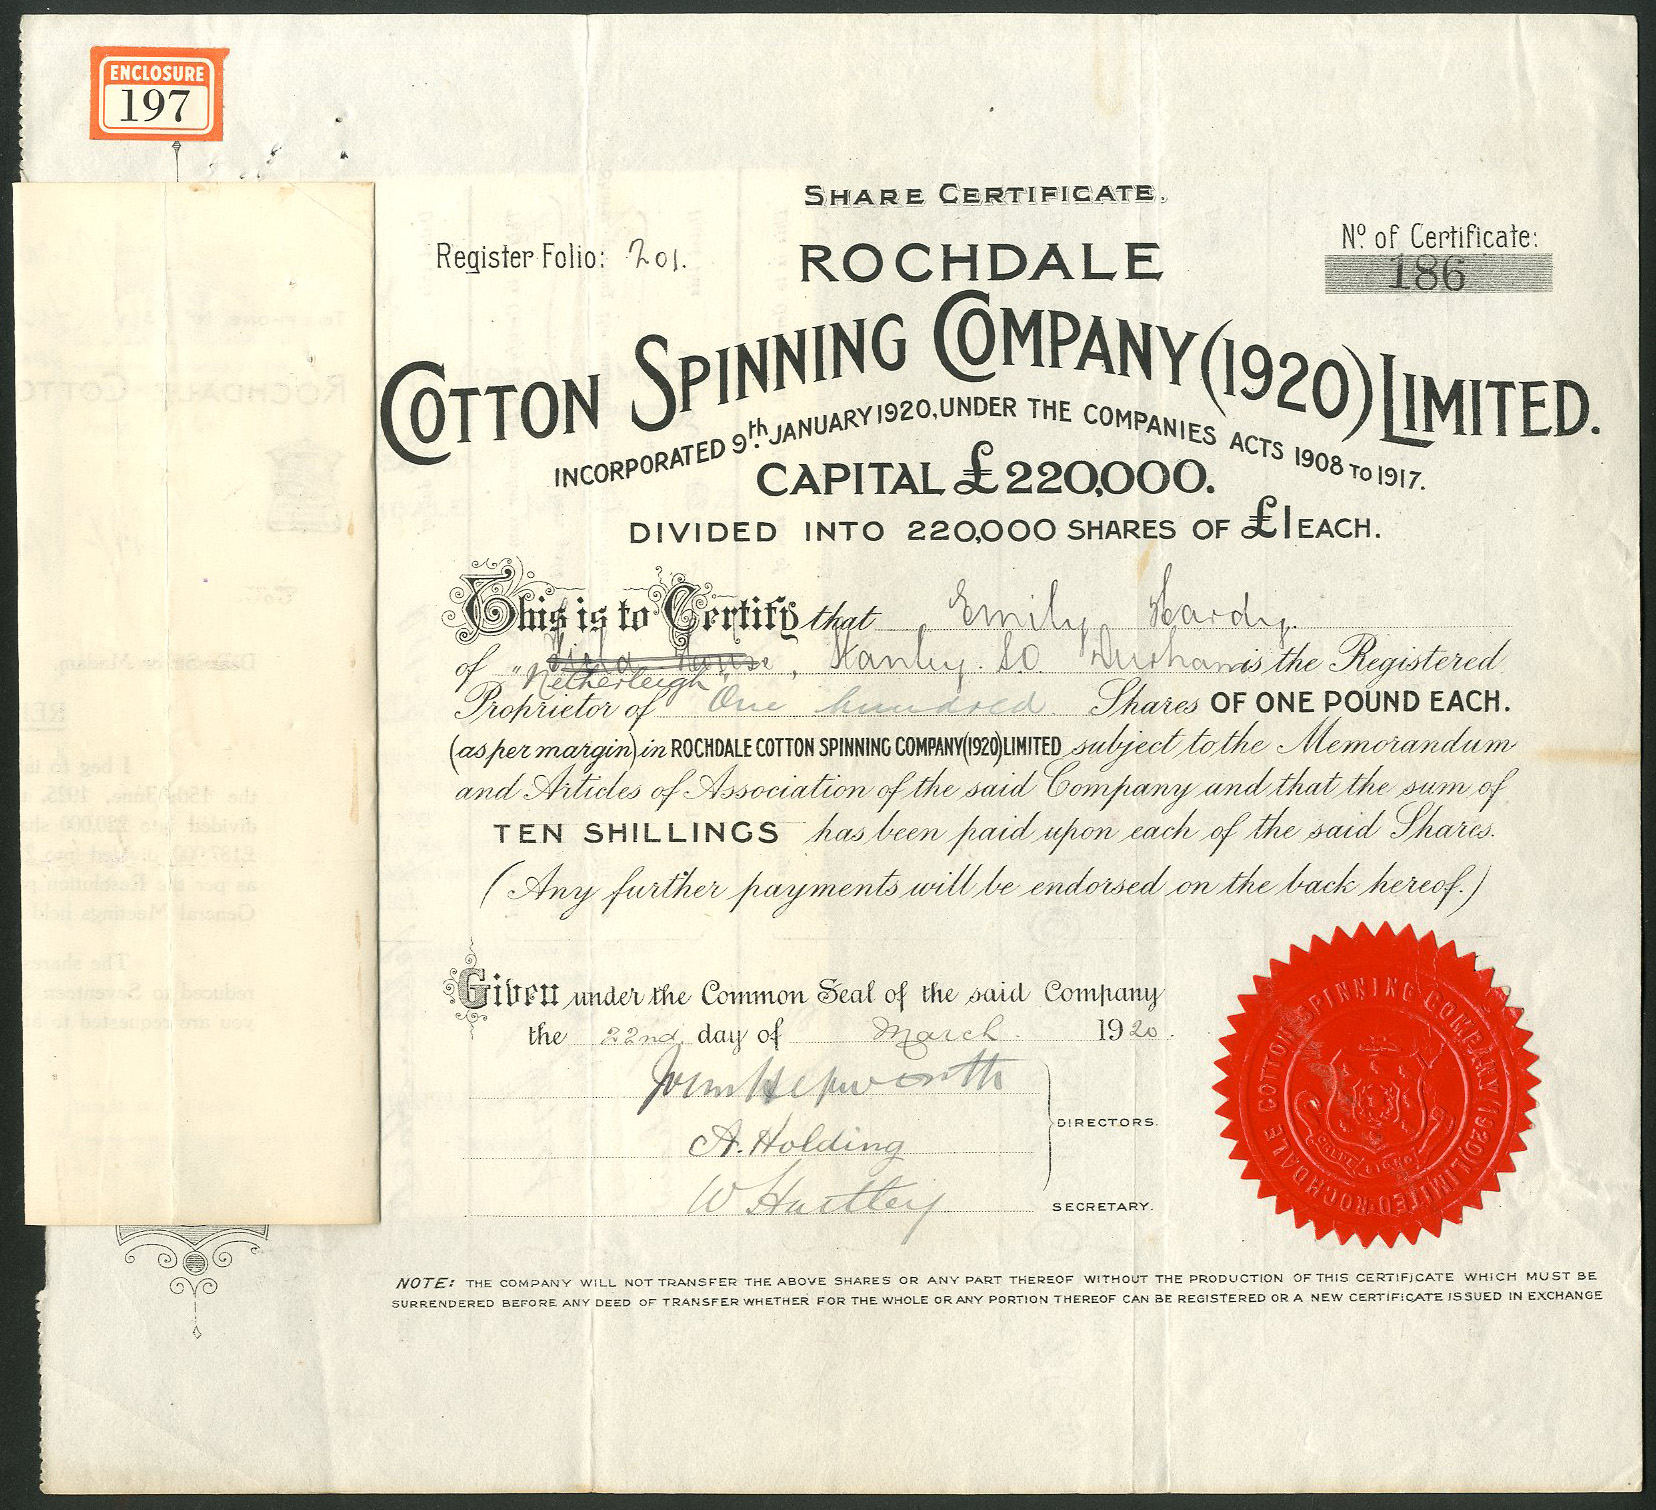 ENCLOSURE
197
SHARE CERTIFICATE.
Register Folio: 201.
Nº of Certificate:
186
ROCHDALE
COTTON SPINNING COMPANY (1920) LIMITED.
INCORPORATED 9th. JANUARY 1920, UNDER THE COMPANIES ACTS 1908 TO 1917.
CAPITAL £220,000.
DIVIDED INTO 220,000 SHARES OF £1 EACH.
This is to Certify that Emily Hardy.
of " House, Stanley. Co. Durham is the Registered
Netherleigh"
Proprietor of One hundred Shares OF ONE POUND EACH.
(as per margin) in ROCHDALE COTTON SPINNING COMPANY (1920) LIMITED subject to the Memorandum
and Articles of Association of the said Company and that the sum of
TEN SHILLINGS has been paid upon each of the said Shares.
(Any further payments will be endorsed on the back hereof.)
Given under the Common Seal of the said Company
the 22nd day of March. 1920.
John Hepworth
A. Holding
DIRECTORS.
W Hartley
SECRETARY.
ROCHDALE COTTON SPINNING COMPANY (1920) LIMITED
NOTE: THE COMPANY WILL NOT TRANSFER THE ABOVE SHARES OR ANY PART THEREOF WITHOUT THE PRODUCTION OF THIS CERTIFICATE WHICH MUST BE
SURRENDERED BEFORE ANY DEED OF TRANSFER WHETHER FOR THE WHOLE OR ANY PORTION THEREOF CAN BE REGISTERED OR A NEW CERTIFICATE ISSUED IN EXCHANGE